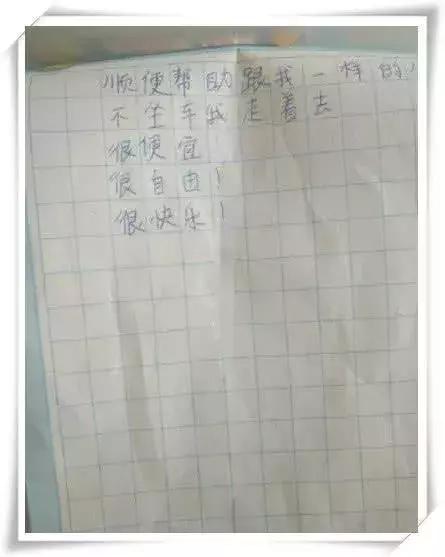 顺便帮助跟我一样的
不坐车我走着去
很便宜
很自由！
很快乐！